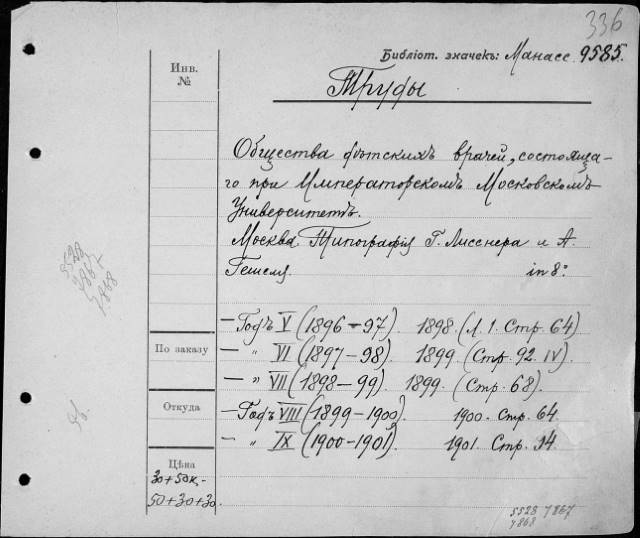 336
Библіот. значекъ: Манасс. 9585.
Инв.
№
Труды
Общества дѣтскихъ врачей, состояща-
го при Императорскомъ Московскомъ
Университетѣ.
Москва. Типографія Г. Лисснера и А.
Гешеля in 8°.
— Годъ V (1896–97). 1898. (Л. 1. Стр. 64)
— " VI (1897–98). 1899. (Стр. 92. IV).
— " VII (1898–99). 1899. (Стр. 68).
— Годъ VIII (1899–1900). 1900. Стр. 64.
— " IX (1900–1901). 1901. Стр. 14.
По заказу
Откуда
Цѣна
30+50к.
50+30+30.
5528 7867
7868